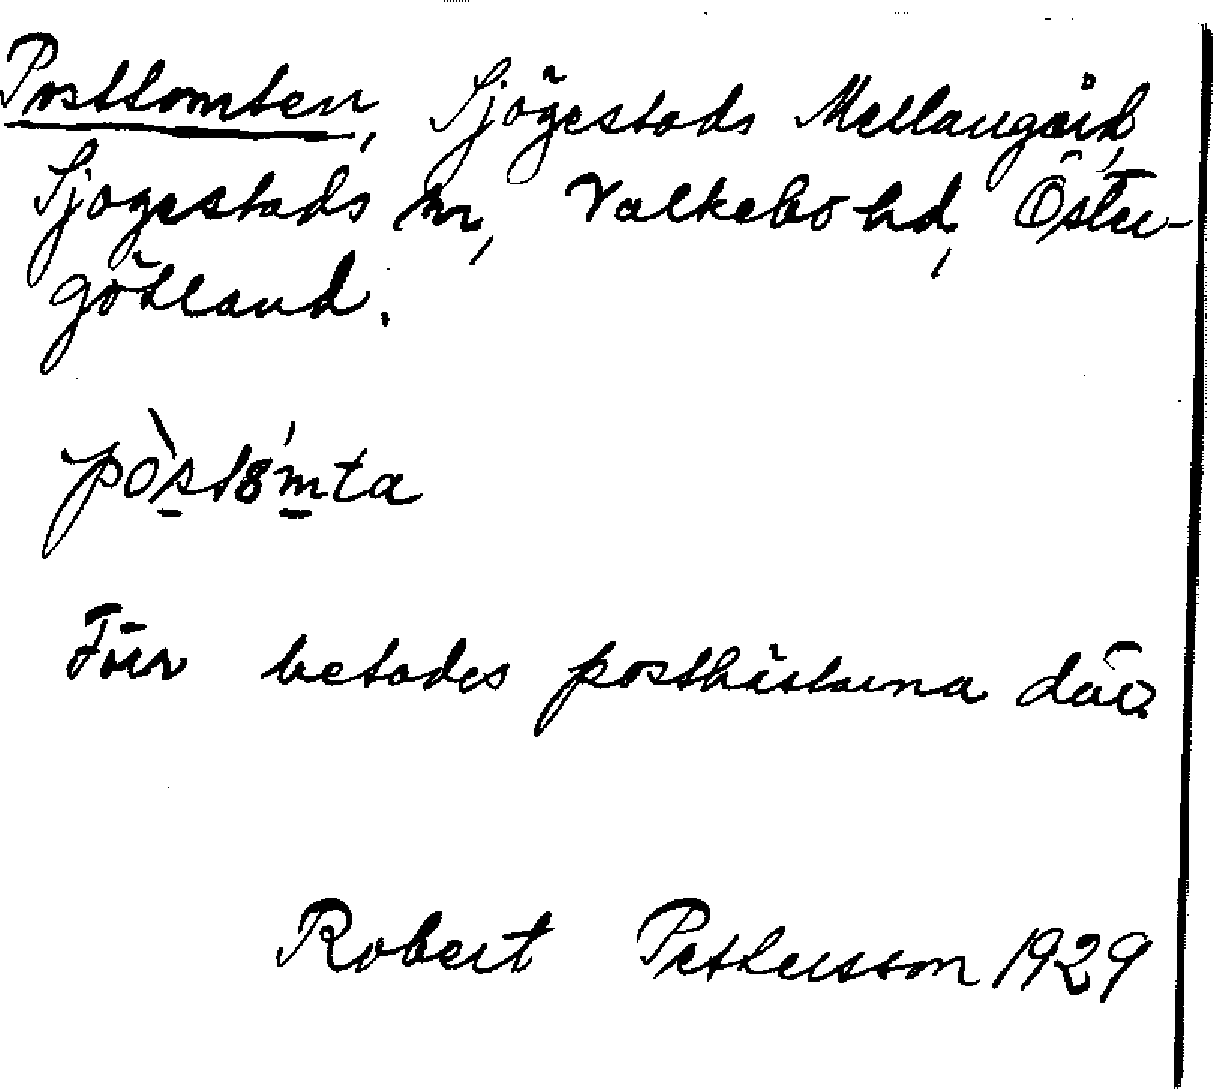 Posttomten, Sjögestads Mellangård,
Sjögestads sn, Valkebo hd, Öster-
götland.
pòstómta
Förr betades posthästarna där.
Robert Pettersson 1929